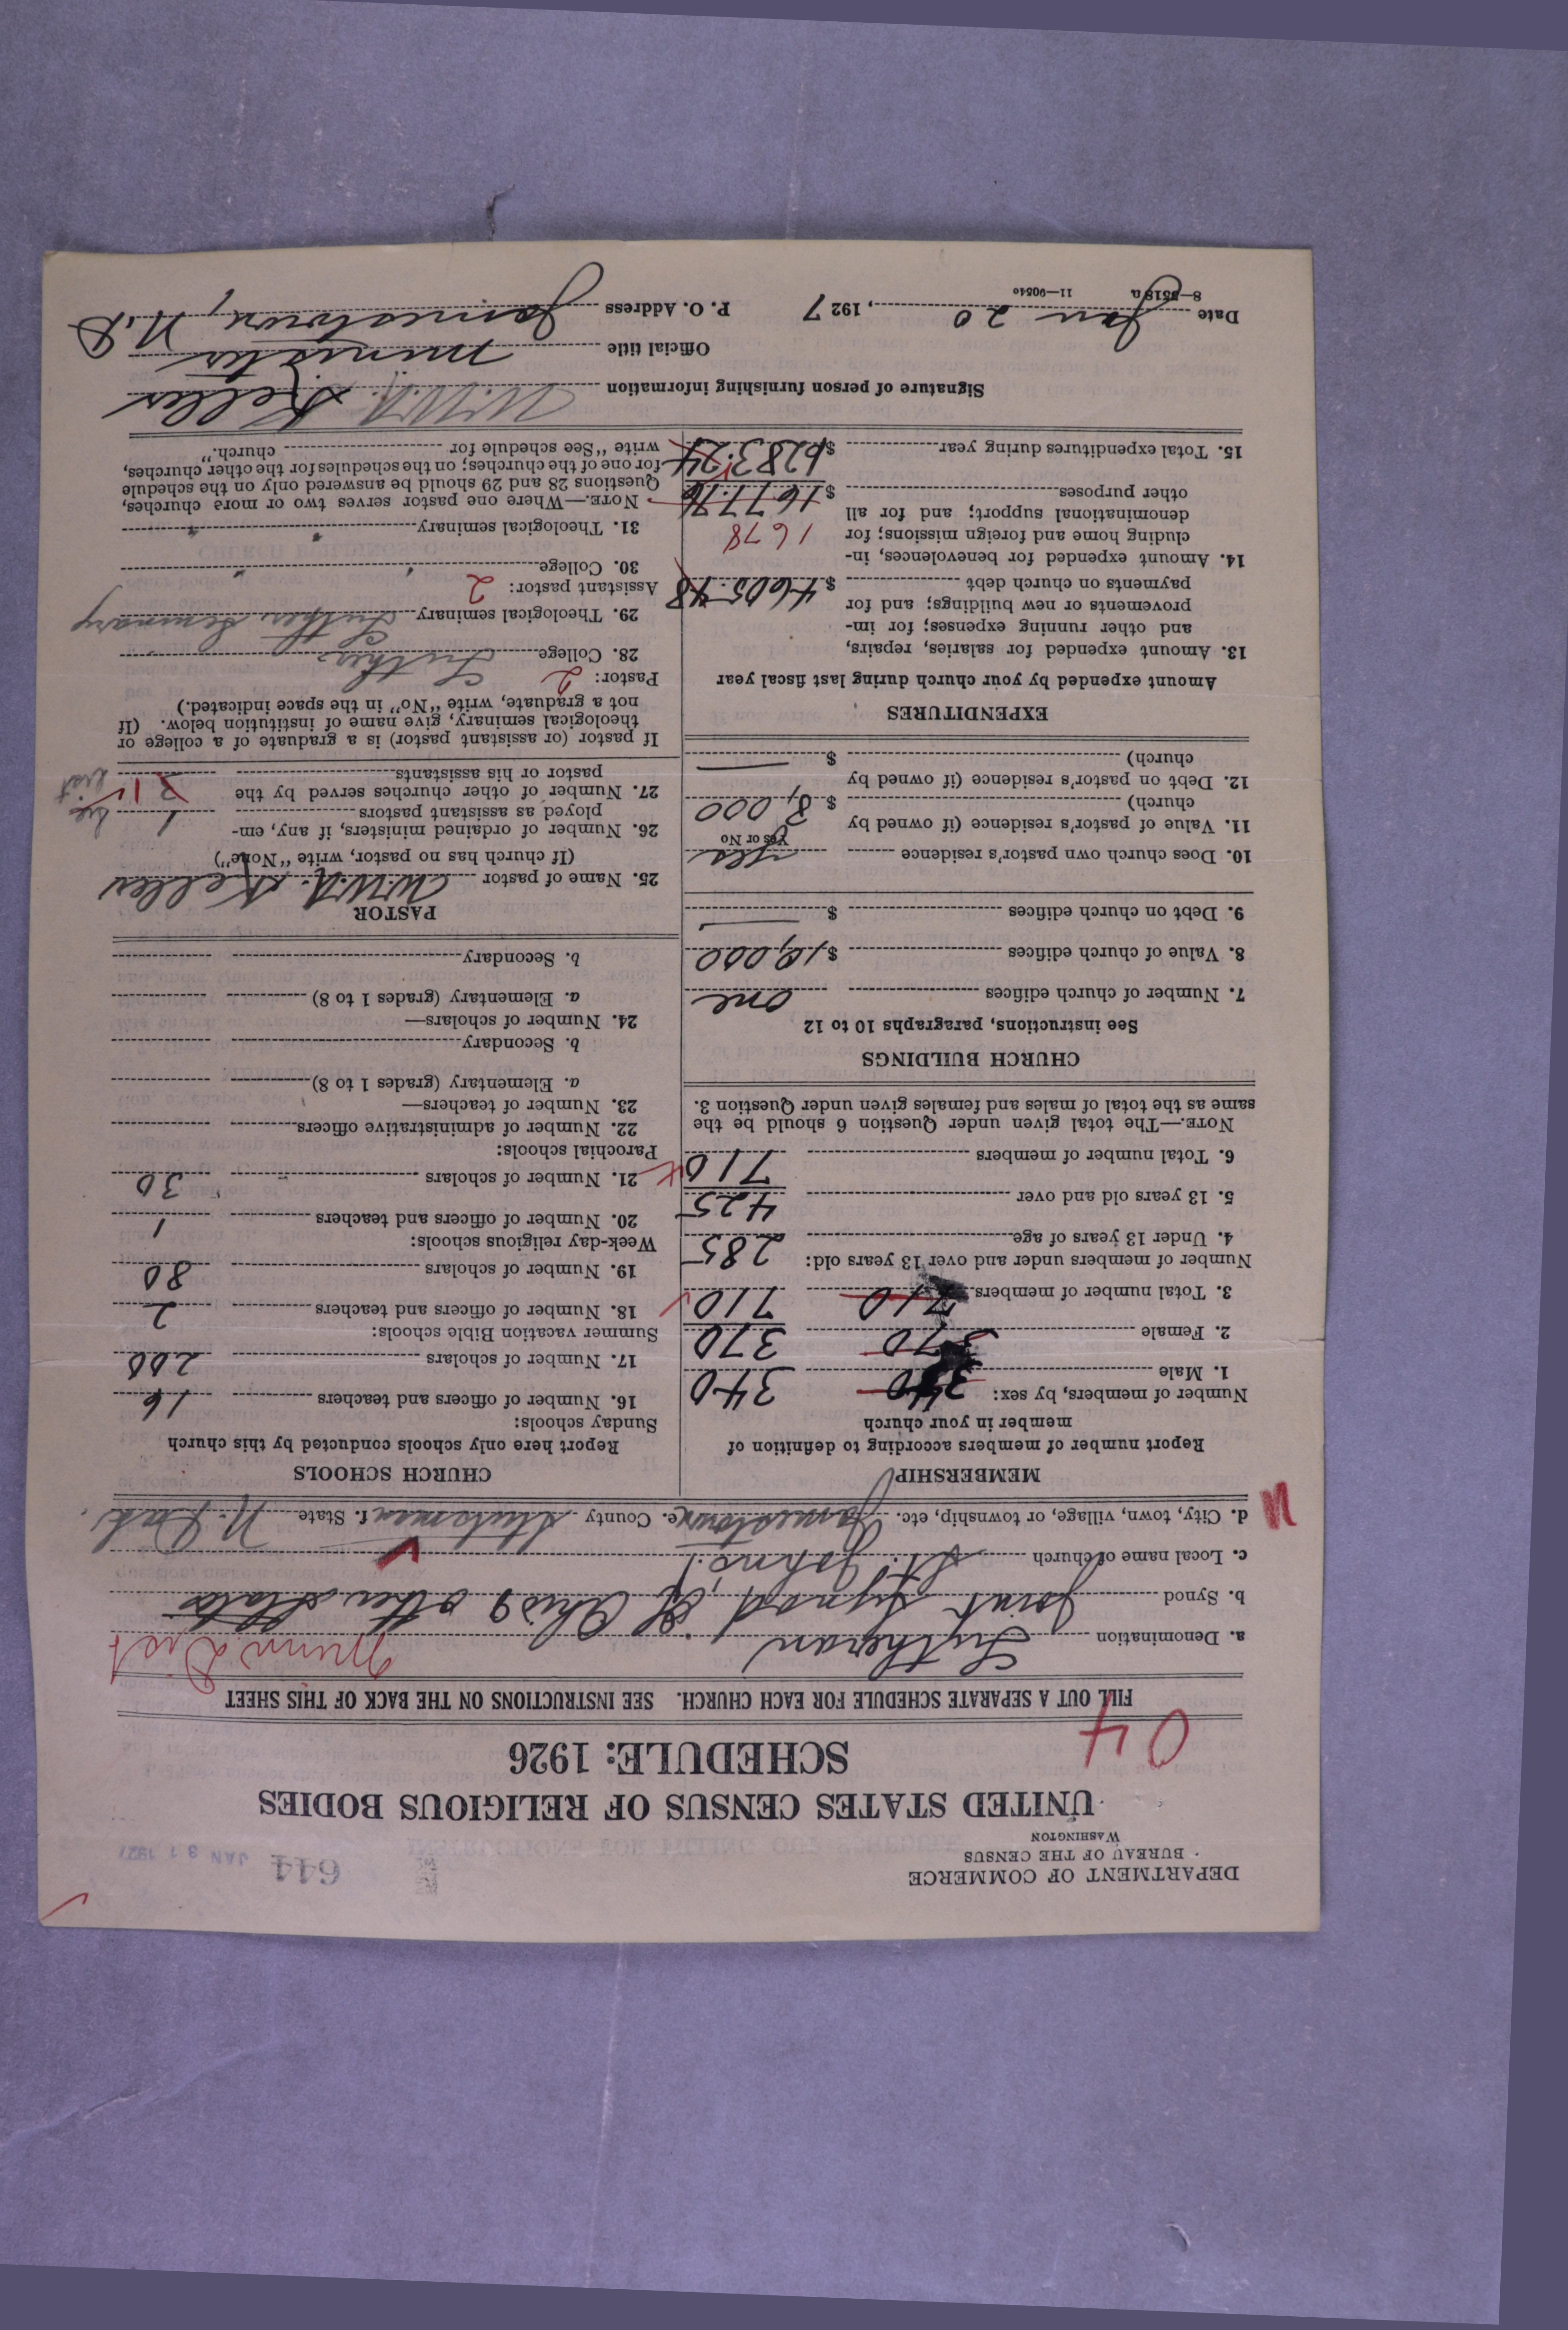 DEPARTMENT OF COMMERCE
BUREAU OF THE CENSUS
WASHINGTON
644
JAN 31 1927
UNITED STATES CENSUS OF RELIGIOUS BODIES
SCHEDULE: 1926
04
FILL OUT A SEPARATE SCHEDULE FOR EACH CHURCH. SEE INSTRUCTIONS ON THE BACK OF THIS SHEET
a. Denomination Lutheran
Minn Dist
b. Synod Joint Synod of Ohio & other States
c. Local name of church St. Johns
d. City, town, village, or township, etc. Jamestown e. County Stutsman f. State N. Dak
MEMBERSHIP
Report number of members according to definition of
member in your church
Number of members, by sex:
1. Male 340 340
2. Female 370 370
3. Total number of members 710 710
Number of members under and over 13 years old:
4. Under 13 years of age 285
5. 13 years old and over 425
6. Total number of members 710
NOTE.—The total given under Question 6 should be the
same as the total of males and females given under Question 3.
CHURCH BUILDINGS
See instructions, paragraphs 10 to 12
7. Number of church edifices one
8. Value of church edifices $10,000
9. Debt on church edifices $
10. Does church own pastor's residence yes
Yes or No
11. Value of pastor's residence (if owned by
church) $8,000
12. Debt on pastor's residence (if owned by
church) $
EXPENDITURES
Amount expended by your church during last fiscal year
13. Amount expended for salaries, repairs,
and other running expenses; for im-
provements or new buildings; and for
payments on church debt $4605.48
14. Amount expended for benevolences, in-
cluding home and foreign missions; for
denominational support; and for all
other purposes $1677.76
1678
15. Total expenditures during year $6283.24
CHURCH SCHOOLS
Report here only schools conducted by this church
Sunday schools:
16. Number of officers and teachers 16
17. Number of scholars 200
Summer vacation Bible schools:
18. Number of officers and teachers 2
19. Number of scholars 80
Week-day religious schools:
20. Number of officers and teachers 1
21. Number of scholars 30
Parochial schools:
22. Number of administrative officers
23. Number of teachers—
a. Elementary (grades 1 to 8)
b. Secondary
24. Number of scholars—
a. Elementary (grades 1 to 8)
b. Secondary
PASTOR
25. Name of pastor W.W.A. Keller
(If church has no pastor, write "None")
26. Number of ordained ministers, if any, em-
ployed as assistant pastors
27. Number of other churches served by the
pastor or his assistants
If pastor (or assistant pastor) is a graduate of a college or
theological seminary, give name of institution below. (If
not a graduate, write "No" in the space indicated.)
Pastor: 2
28. College Luther
29. Theological seminary Luther Seminary
Assistant pastor: 2
30. College
31. Theological seminary
NOTE.—Where one pastor serves two or more churches,
Questions 28 and 29 should be answered only on the schedule
for one of the churches; on the schedules for the other churches,
write "See schedule for church."
Signature of person furnishing information W.W.A. Keller
Official title minister
Date Jan 20, 1927 P. O. Address Jamestown, N.D
8—5518a 11—90540